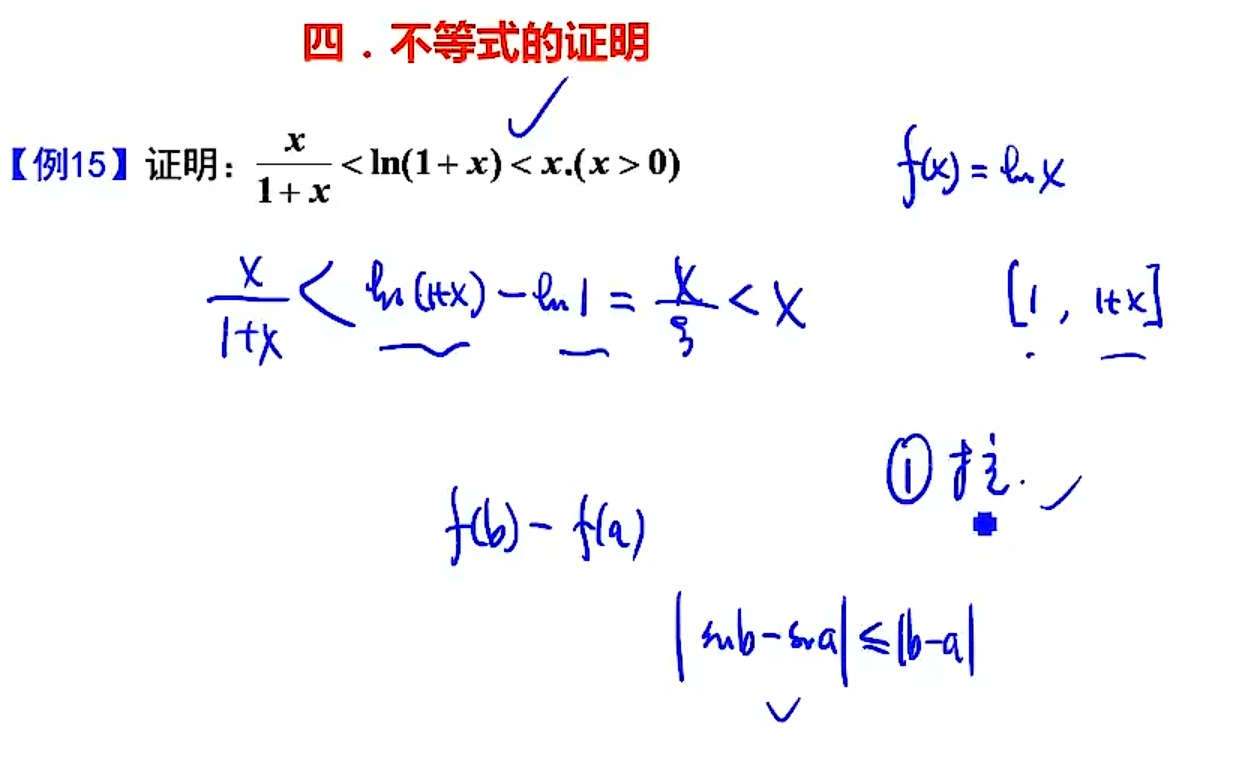 四．不等式的证明
【例15】证明：x/(1+x) < ln(1+x) < x.(x>0)
f(x) = ln x
x/(1+x) < ln(1+x) − ln 1 = x/ξ < x
[1, 1+x]
①
f(b) − f(a)
|sin b − sin a| ≤ |b−a|